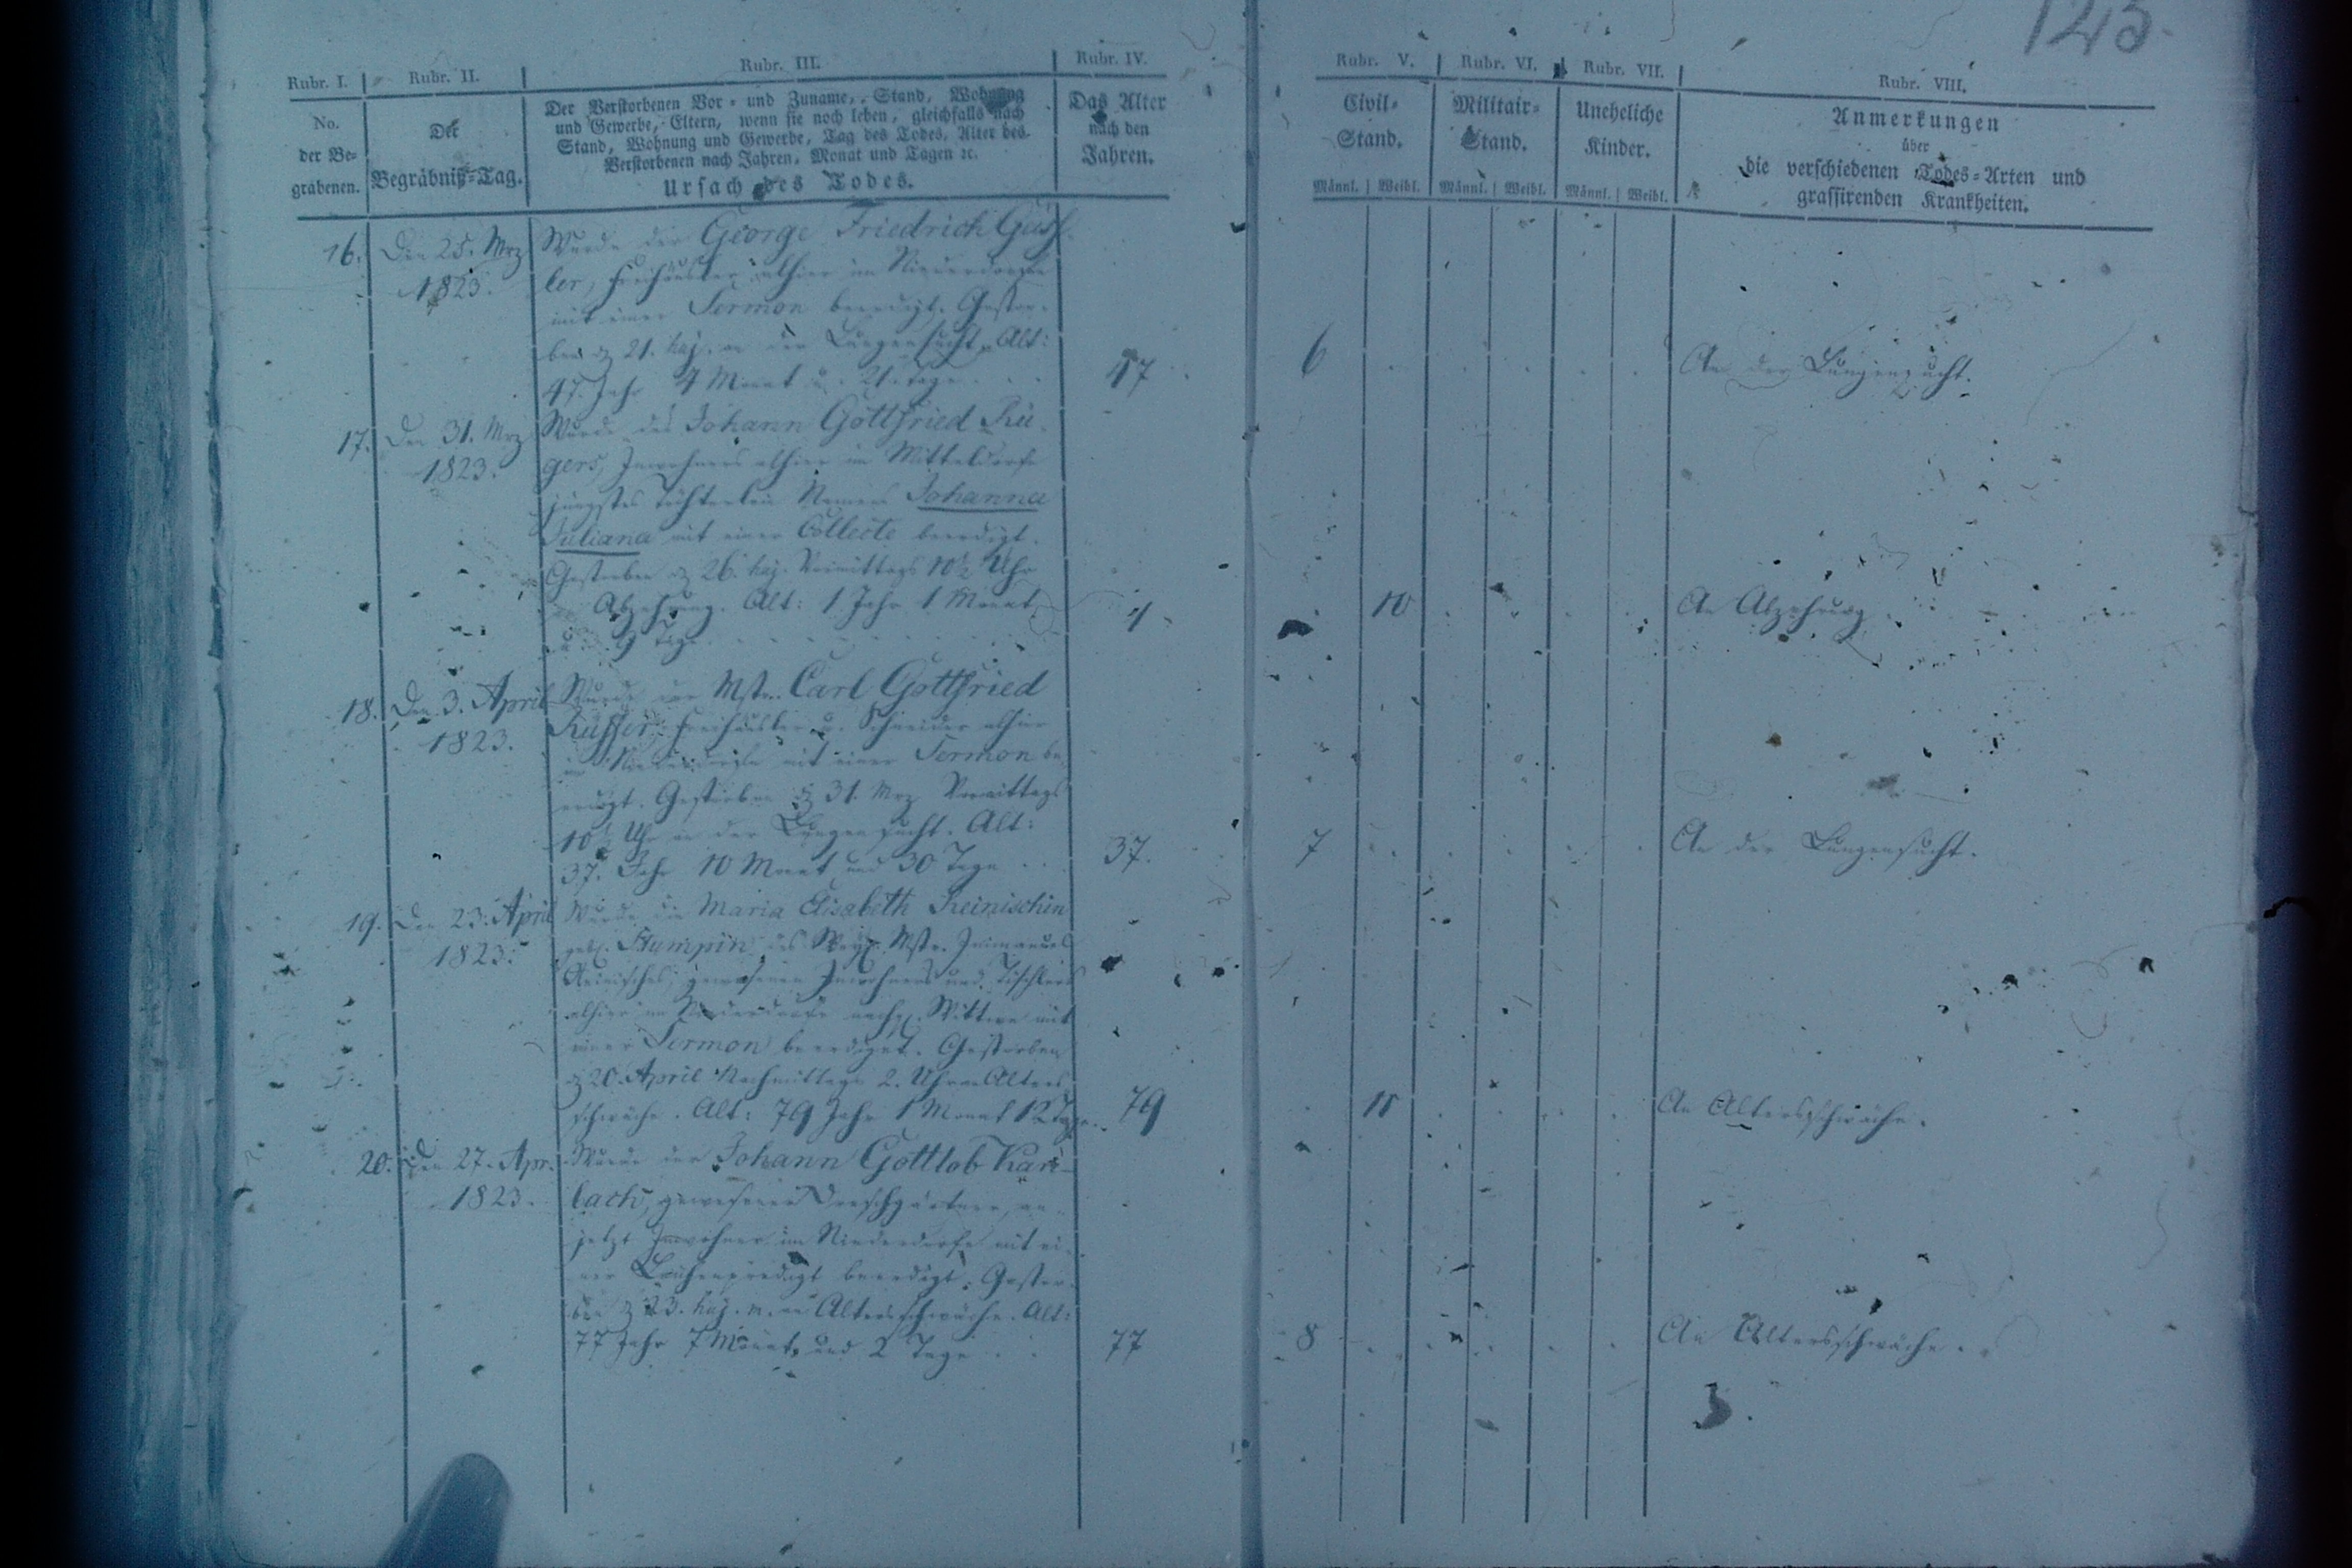 123.
Rubr. I. Rubr. II. Rubr. III. Rubr. IV. Rubr. V. Rubr. VI. Rubr. VII. Rubr. VIII.
No.
der Be-
grabenen.
Der
Begräbniß-Tag.
Der Verstorbenen Vor- und Zuname, Stand, Wohnung
und Gewerbe, Eltern, wenn sie noch leben, gleichfalls nach
Stand, Wohnung und Gewerbe, Tag des Todes, Alter des
Verstorbenen nach Jahren, Monat und Tagen ꝛc.
Ursach des Todes.
Das Alter
nach den
Jahren.
Civil-
Stand.
Männl. Weibl.
Militair-
Stand.
Männl. Weibl.
Uneheliche
Kinder.
Männl. Weibl.
Anmerkungen
über
die verschiedenen Todes-Arten und
grassirenden Krankheiten.
16. Den 25. Mrz
1823.
Wurde der George Friedrich
ler, Freihäusler alhier im Niederdorfe
mit einer Sermon beerdigt. Gestor-
ben 21. huj. an der Lungensucht. Alt:
47. Jahr 4 Monat u. 21. Tage
47 6 An der Lungensucht.
17. Den 31. Mrz
1823.
Wurde des Johann Gottfried Rü-
gers, Inwohners alhier im Mitteldorfe
jüngstes Töchterlein Namens Johanna
Juliana mit einer Collecte beerdigt.
Gestorben 26. huj. Vormittags 10½ Uhr
Abzehrung. Alt: 1 Jahr 1 Monat
u. 9 Tage
1 10 An Abzehrung
18. Den 3. April
1823.
Wurde der Mstr. Carl Gottfried
Freihäusler u. Schneider alhier
im Niederdorfe mit einer Sermon be-
erdigt. Gestorben 31. Mrz Vormittags
10½ Uhr an der Lungensucht. Alt:
37. Jahr 10 Monat und 30 Tage
37. 7 An der Lungensucht.
19. Den 23. April
1823.
Wurde die Maria Elisabeth Reinischin
geb. Stumpin, des Mstr. Immanuel
Reinisches, gewesenen Inwohners und Tischlers
alhier im Niederdorfe Wittwe mit
einer Sermon beerdiget. Gestorben
20. April Nachmittags 2. Uhr an Alters
schwäche. Alt: 79 Jahr 1 Monat 12 Tage
79 11 An Altersschwäche.
20. Den 27. Apr.
1823.
Wurde der Johann Gottlob
bach, gewesener Dreschgärtner, an-
jetzt Inwohner im Niederdorfe mit ei-
ner Leichenpredigt beerdigt. Gestor-
ben 23. huj. an Altersschwäche. Alt:
77 Jahr 7 Monat und 2 Tage
77 8 An Altersschwäche.